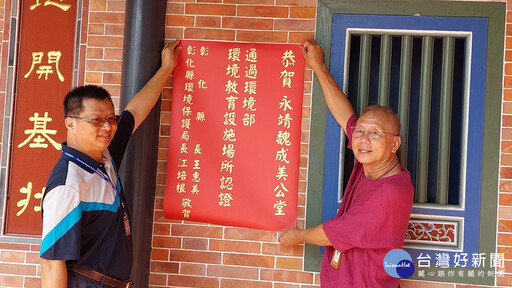 恭賀 永靖魏成美公堂
通過環境部
環境教育設施場所認證
彰化縣長 王惠美
彰化縣環境保護局長 江培根 敬賀
開基壯
台灣好新聞
關心你在意的新聞